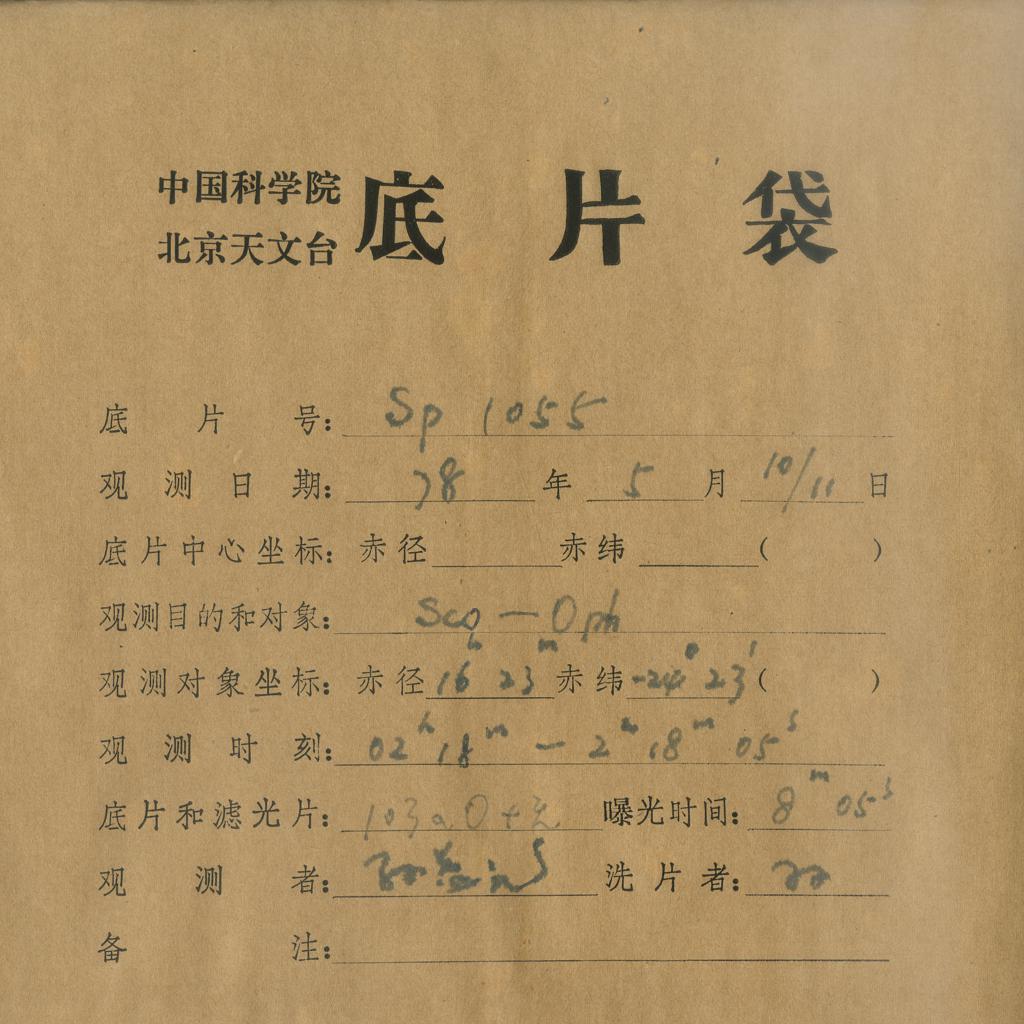 中国科学院
北京天文台
底片袋
底片号: Sp 1055
观测日期: 78年 5月 10/11日
底片中心坐标: 赤径 赤纬 ( )
观测目的和对象: Sco — Oph
观测对象坐标: 赤径 16h 23m 赤纬 -24° 23′ ( )
观测时刻: 02h 18m — 2h 18m 05s
底片和滤光片: 103a O + 无 曝光时间: 8m 05s
观测者: 洗片者:
备注: